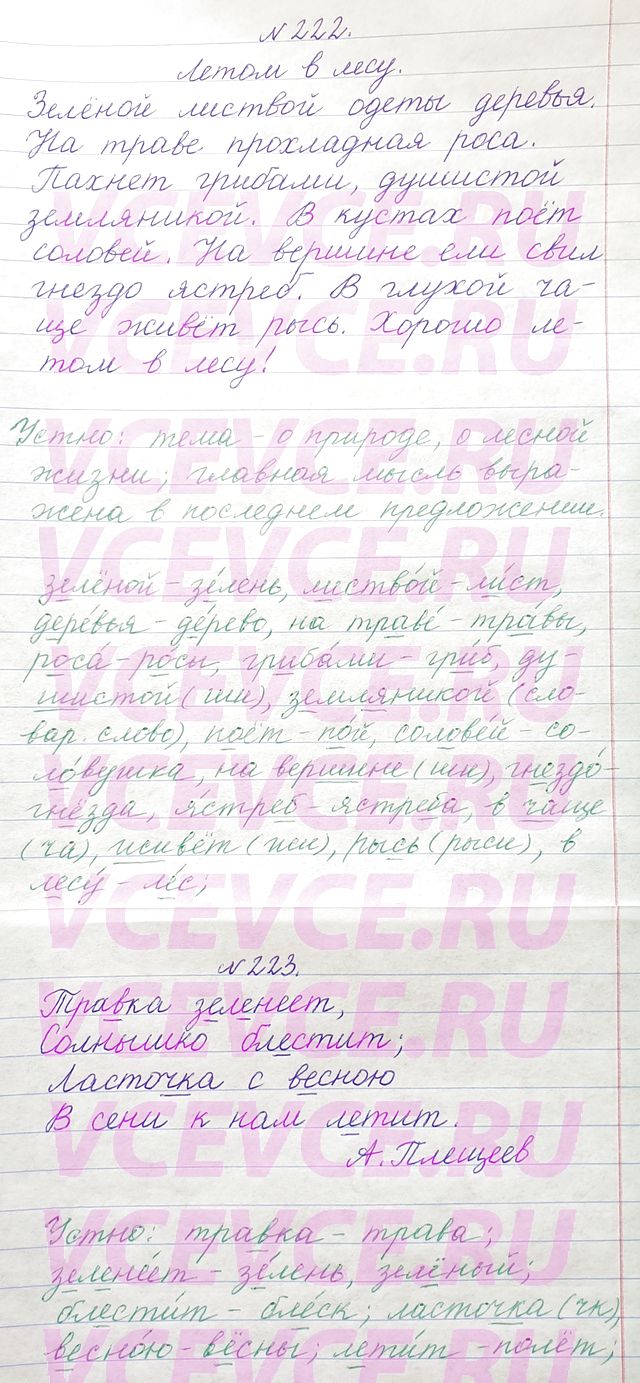 №222.
Летом в лесу.
Зелёной листвой одеты деревья.
На траве прохладная роса.
Пахнет грибами, душистой
земляникой. В кустах поёт
соловей. На вершине ели свил
гнездо ястреб. В глухой ча-
ще живёт рысь. Хорошо ле-
том в лесу!
Устно: тема - о природе, о лесной
жизни; главная мысль выра-
жена в последнем предложении.
зелёной - зе́лень, листво́й - ли́ст,
дере́вья - де́рево, на траве́ - тра́вы,
роса́ - ро́сы, гриба́ми - гри́б, ду-
шистой (ши), земляникой (сло-
вар. слово), поёт - по́й, солове́й - со-
ло́вушка, на вершине (ши), гнездо́ -
гнёзда, я́стреб - ястреба, в чаще
(ча), живёт (жи), рысь (рыси), в
лесу́ - ле́с;
№223.
Травка зеленеет,
Солнышко блестит;
Ласточка с весною
В сени к нам летит.
А. Плещеев
Устно: травка - трава;
зелене́ет - зе́лень, зелёный;
блести́т - бле́ск; ласточка (чк),
весно́ю - вёсны; лети́т - полёт;
VCEVCE.RU
VCEVCE.RU
VCEVCE.RU
VCEVCE.RU
VCEVCE.RU
VCEVCE.RU
VCEVCE.RU
VCEVCE.RU
VCEVCE.RU
VCEVCE.RU
VCEVCE.RU